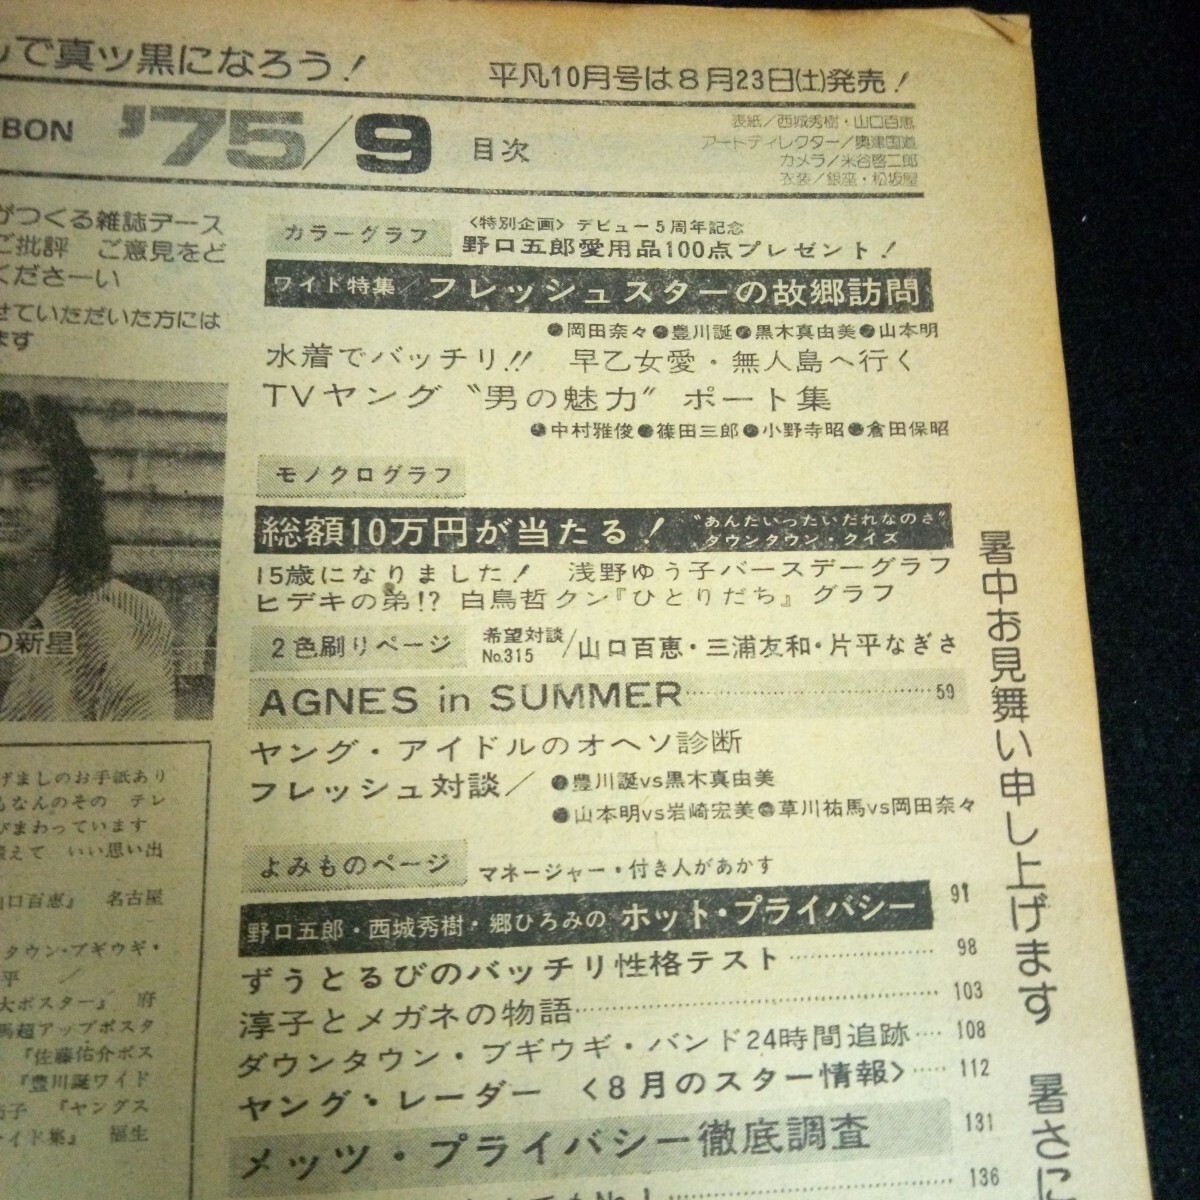 で真ッ黒になろう!
平凡10月号は8月23日(土)発売!
BON '75/9 目次
表紙/西城秀樹・山口百恵
アートディレクター/奥津国道
カメラ/米谷啓二郎
衣装/銀座・松坂屋
がつくる雑誌デース
ご批評 ご意見をど
くださーい
せていただいた方には
ます
カラーグラフ
〈特別企画〉デビュー5周年記念
野口五郎愛用品100点プレゼント!
ワイド特集/フレッシュスターの故郷訪問
●岡田奈々●豊川誕●黒木真由美●山本明
水着でバッチリ!! 早乙女愛・無人島へ行く
TVヤング〝男の魅力〟ポート集
●中村雅俊●篠田三郎●小野寺昭●倉田保昭
モノクログラフ
総額10万円が当たる!
〝あんたいったいだれなのさ〟
ダウンタウン・クイズ
15歳になりました! 浅野ゆう子バースデーグラフ
ヒデキの弟!? 白鳥哲クン『ひとりだち』グラフ
2色刷りページ
希望対談
No.315
/山口百恵・三浦友和・片平なぎさ
AGNES in SUMMER 59
ヤング・アイドルのオヘソ診断
フレッシュ対談/●豊川誕vs黒木真由美
●山本明vs岩崎宏美●草川祐馬vs岡田奈々
よみものページ
マネージャー・付き人があかす
野口五郎・西城秀樹・郷ひろみの ホット・プライバシー 91
ずうとるびのバッチリ性格テスト 98
淳子とメガネの物語 103
ダウンタウン・ブギウギ・バンド24時間追跡 108
ヤング・レーダー 〈8月のスター情報〉 112
メッツ・プライバシー徹底調査 131
No.1 136
の新星
げましのお手紙あり
もなんのその テレ
びまわっています
いい思い出
山口百恵』 名古屋
タウン・ブギウギ・
平 /
大ポスター』 府
馬超アップポスタ
『佐藤佑介ポス
『豊川誕ワイド
子 『ヤングス
イド集』 福生
暑中お見舞い申し上げます 暑さに